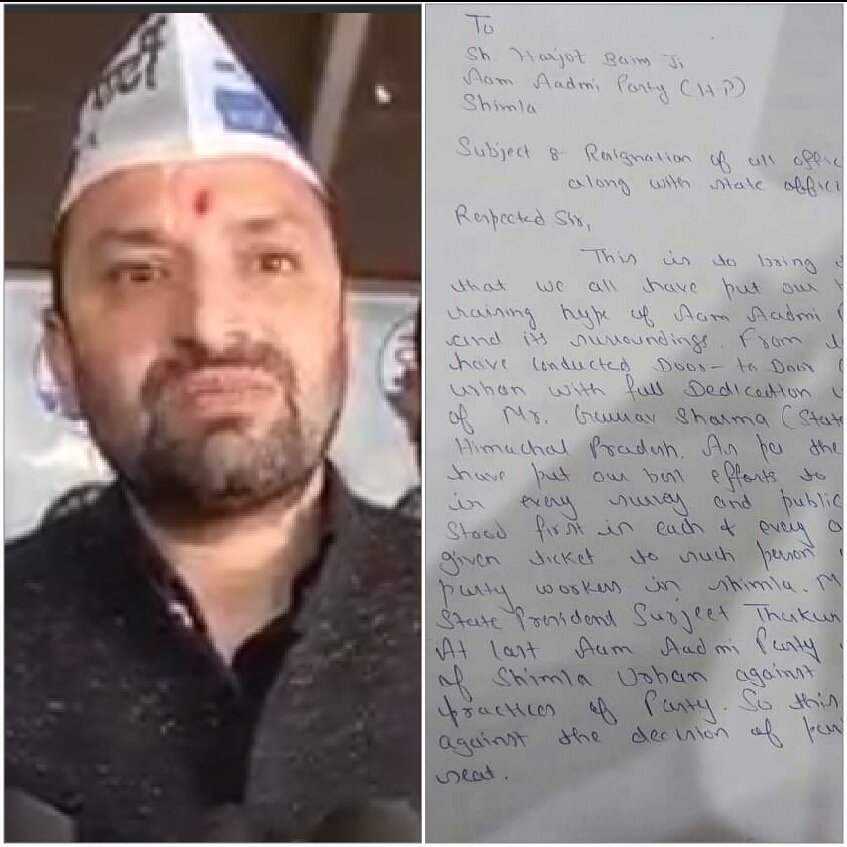 पार्टी
To
Sh. Harjot Bains Ji
Aam Aadmi Party (H.P)
Shimla
Subject :- Resignation of all offic
along with state offici
Respected Sir,
This is to bring
that we all have put our
raising hype of Aam Aadmi
and its surroundings. From
have conducted Door-to Door
urban with full Dedication
of Mr. Gaurav Sharma (State
Himachal Pradesh. As per the
have put our best efforts to
in every survey and public
Stood first in each & every
given ticket to such person
party workers in shimla. M
State President Surjeet Thakur
At last Aam Aadmi Party
of Shimla Urban against
practices of Party. So this
against the decision of
seat.